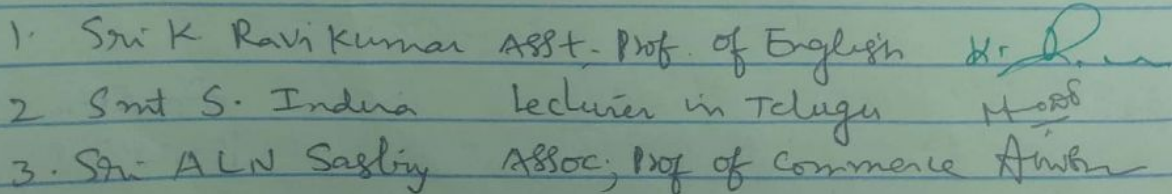 1. Sri K Ravi Kumar Asst. Prof. of English
2 Smt S. Indira Lecturer in Telugu
3. Sri ALN Sastry Assoc; Prof of Commerce